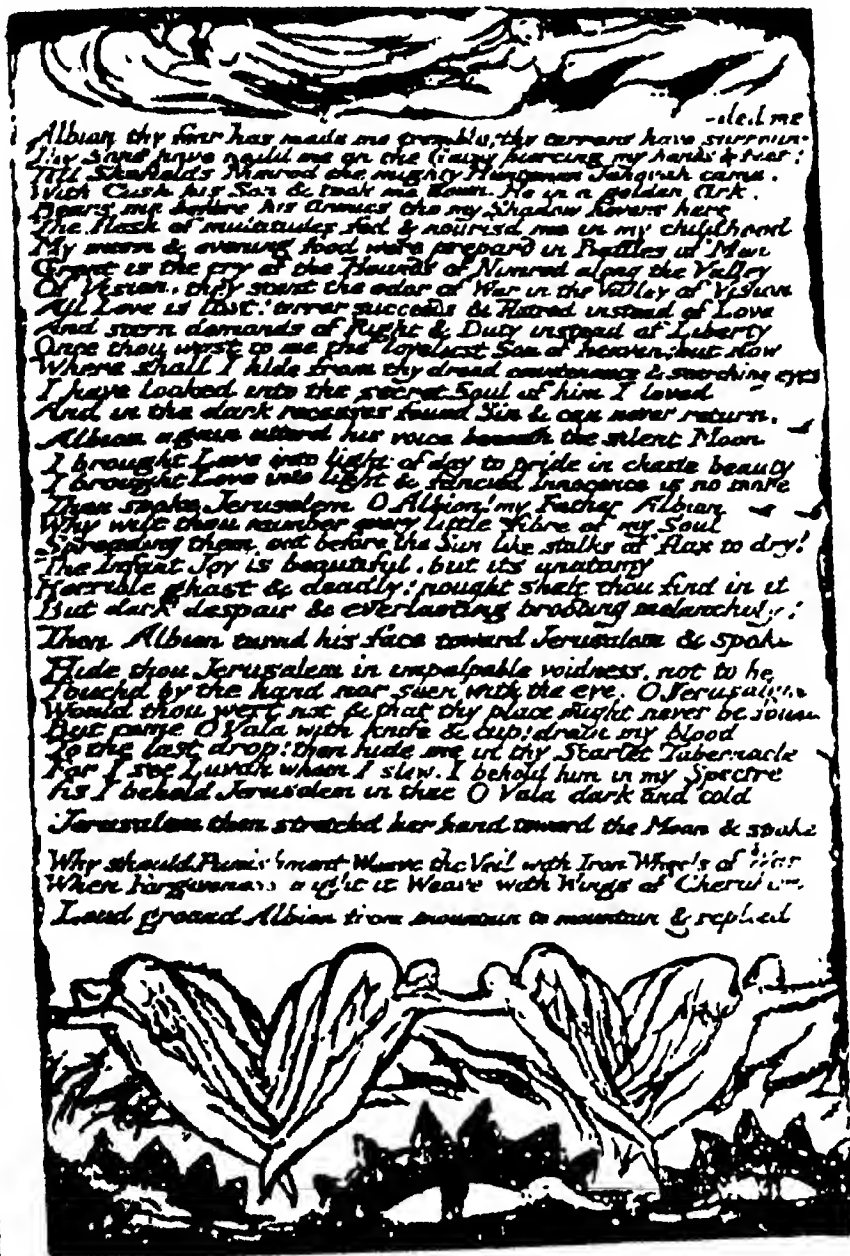 -ded me
Albion thy fear has made me tremble; thy terrors have surroun-
Thy Sons have naild me on the Gates piercing my hands & feet:
Till Skofields Nimrod the mighty Huntsman Jehovah came,
With Cush his Son & took me down. He in a golden Ark,
Bears me before his Armies tho my Shadow hovers here
The flesh of multitudes fed & nourisd me in my childhood
My morn & evening food were prepard in Battles of Men
Great is the cry of the Hounds of Nimrod along the Valley
Of Vision, they scent the odor of War in the Valley of Vision
All Love is lost: terror succeeds & Hatred instead of Love
And stern demands of Right & Duty instead of Liberty
Once thou wast to me the loveliest Son of heaven; but now
Where shall I hide from thy dread countenance & searching eyes
I have looked into the secret Soul of him I loved
And in the dark recesses found Sin & can never return.
Albion again utterd his voice beneath the silent Moon
I brought Love into light of day to pride in chaste beauty
I brought Love into light & fancied Innocence is no more
Then spoke Jerusalem O Albion! my Father Albion
Why wilt thou number every little fibre of my Soul
Spreading them out before the Sun like stalks of flax to dry?
The Infant Joy is beautiful, but its anatomy
Horrible ghast & deadly: nought shalt thou find in it
But dark despair & everlasting brooding melancholy:
Then Albion turnd his face toward Jerusalem & spoke
Hide thou Jerusalem in impalpable voidness, not to be
Touchd by the hand nor seen with the eye. O Jerusalem
Would thou wert not & that thy place might never be found
But come O Vala with knife & cup: drain my blood
To the last drop: then hide me in thy Scarlet Tabernacle
For I see Luvah whom I slew. I behold him in my Spectre
As I behold Jerusalem in thee O Vala dark and cold
Jerusalem then stretchd her hand toward the Moon & spoke
Why should Punishment Weave the Veil with Iron Wheels of War
When Forgiveness might it Weave with Wings of Cherubim
Loud groand Albion from mountain to mountain & replied